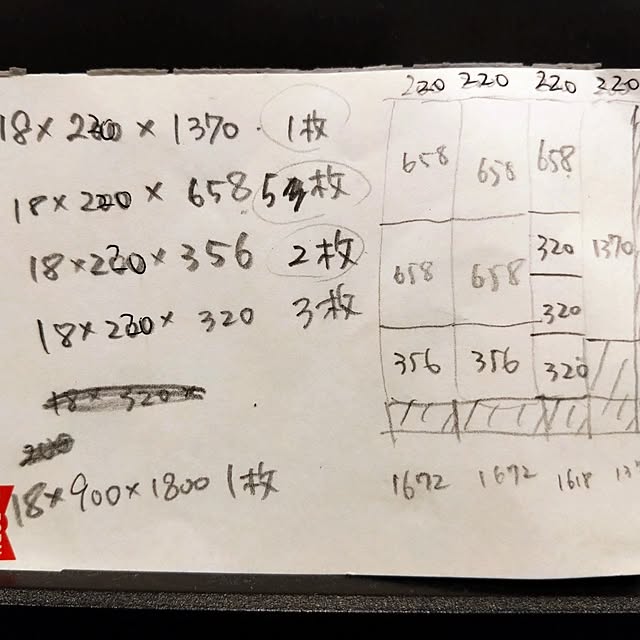 18×220×1370 1枚
18×220×658 5枚
18×220×356 2枚
18×220×320 3枚
18×900×1800 1枚
220 220 220 220
658 658 658
320 1370
658 658
320
356 356 320
1672 1672 1618